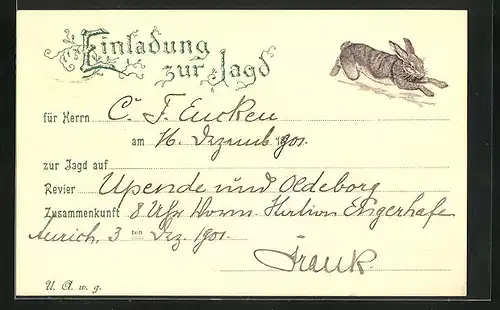 Einladung
zur Jagd
für Herrn C. F. Eucken
am 16. Dezemb. 1901.
zur Jagd auf
Revier Upende und Oldeborg
Zusammenkunft 8 Uhr Vorm. Engerhafe
Aurich, 3 ten Dez. 1901.
Frank.
U. A. w. g.